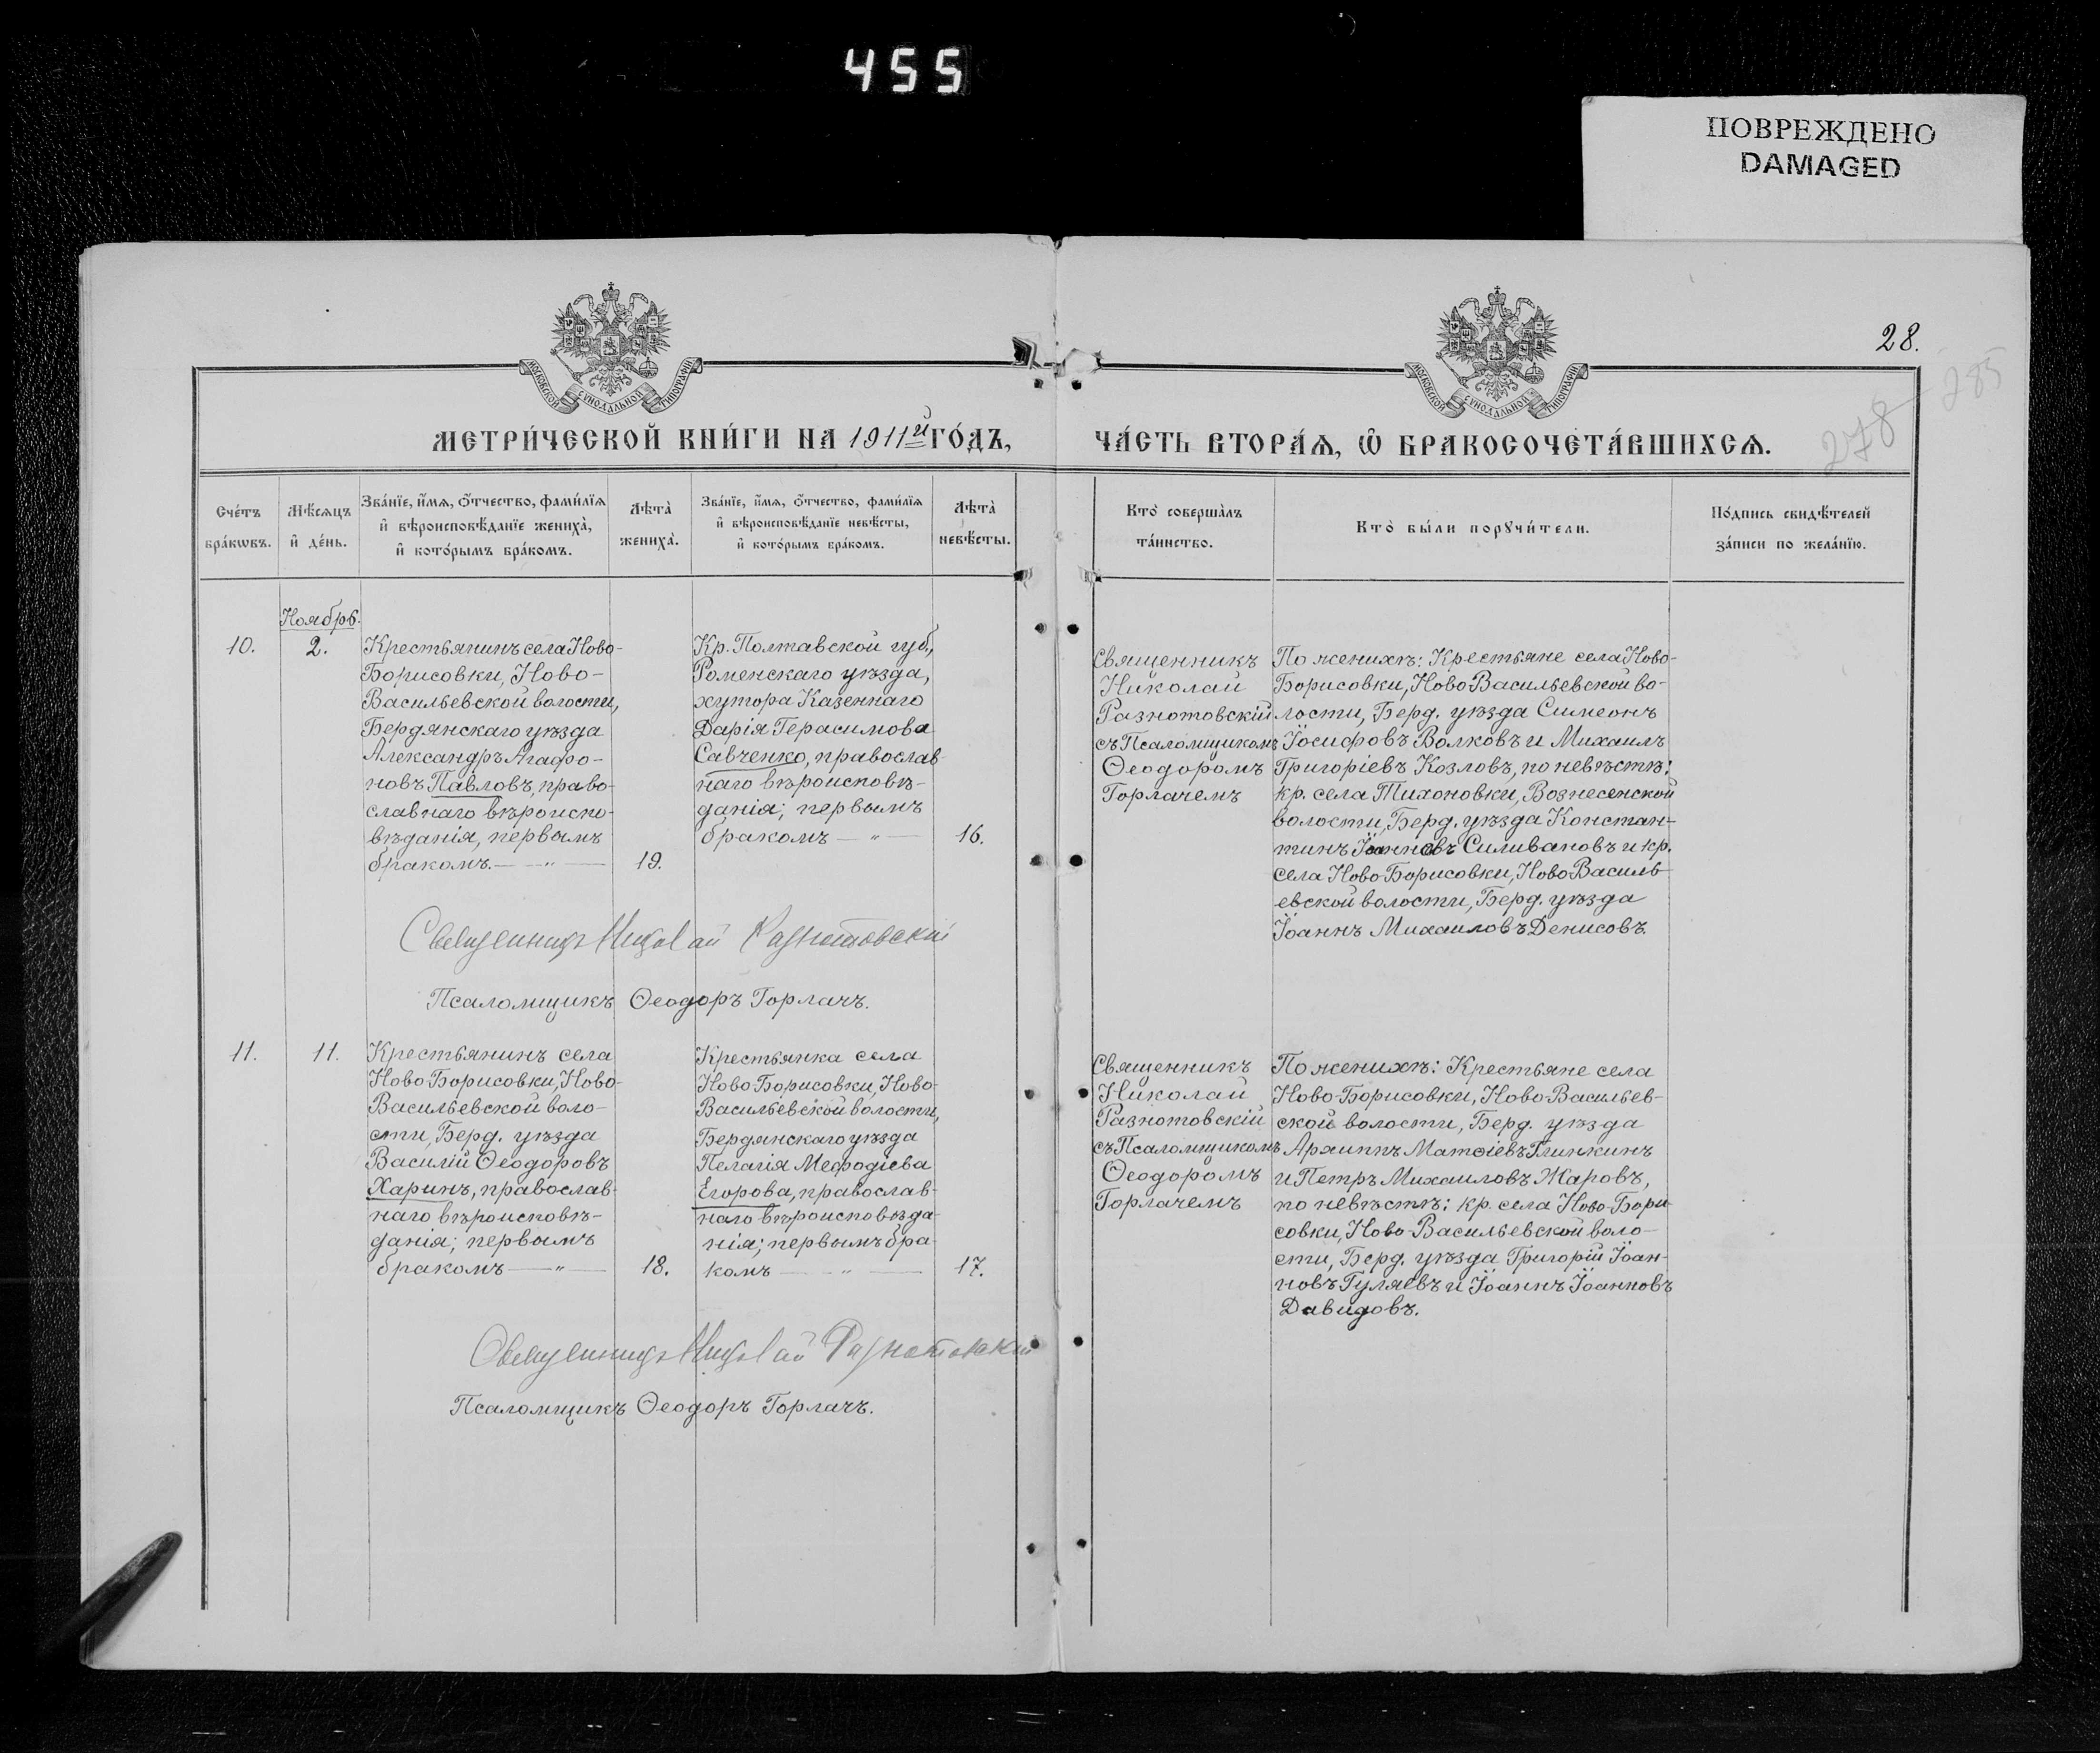 455
ПОВРЕЖДЕНО
DAMAGED
МОСКОВСКОЙ СѴНОДАЛЬНОЙ ТИПОГРАФІИ
МОСКОВСКОЙ СѴНОДАЛЬНОЙ ТИПОГРАФІИ
28.
285
278
МЕТРИ́ЧЕСКОЙ КНИ́ГИ НА 1911й ГО́ДЪ,
ЧА́СТЬ ВТОРА́Ѧ, Ѽ БРАКОСОЧЕТА́ВШИХСѦ.
Сче́тъ
бра́кѡвъ.
Мѣ́сѧцъ
и҆ де́нь.
Зва́нїе, и҆́мѧ, ѻ҆́тчество, фами́лїѧ
и҆ вѣроисповѣ́данїе жениха̀,
и҆ кото́рымъ бра́комъ.
Лѣта̀
жениха̀.
Зва́нїе, и҆́мѧ, ѻ҆́тчество, фами́лїѧ
и҆ вѣроисповѣ́данїе невѣ́сты,
и҆ кото́рымъ бра́комъ.
Лѣта̀
невѣ́сты.
Кто̀ соверша̀лъ
та́инство.
Кто̀ бы́ли порꙋчи́тели.
По́дпись свидѣ́телей
за́писи по жела́нїю.
Ноябрь.
10.
2.
Крестьянинъ села Ново-
Борисовки, Ново-
Васильевской волости,
Бердянскаго уѣзда
Александръ Агафо-
новъ Павловъ, право-
славнаго вѣроиспо-
вѣданія, первымъ
бракомъ. — " —
19.
Кр. Полтавской губ.,
Роменскаго уѣзда,
хутора Казеннаго
Дарія Герасимова
Савченко, православ-
наго вѣроисповѣ-
данія; первымъ
бракомъ — " —
16.
Священникъ
Николай
Разнотовскій
съ Псаломщикомъ
Ѳеодоромъ
Горлачемъ
По женихѣ: Крестьяне села Ново-
Борисовки, Ново Васильевской во-
лости, Берд. уѣзда Симеонъ
Іосифовъ Волковъ и Михаилъ
Григоріевъ Козловъ, по невѣстѣ:
кр. села Тихоновки, Вознесенской
волости, Берд. уѣзда Констан-
тинъ Іоанновъ Силивановъ и кр.
села Ново Борисовки, Ново Василь-
евской волости, Берд. уѣзда
Іоаннъ Михаиловъ Денисовъ.
Священникъ Николай Разнотовскій
Псаломщикъ Ѳеодоръ Горлачъ.
11.
11.
Крестьянинъ села
Ново Борисовки, Ново-
Васильевской воло-
сти, Берд. уѣзда
Василій Ѳеодоровъ
Харинъ, православ-
наго вѣроисповѣ-
данія; первымъ
бракомъ — " —
18.
Крестьянка села
Ново Борисовки, Ново-
Васильевской волости,
Бердянскаго уѣзда
Пелагія Меѳодіева
Егорова, православ-
наго вѣроисповѣда-
нія; первымъ бра-
комъ — " —
17.
Священникъ
Николай
Разнотовскій
съ Псаломщикомъ
Ѳеодоромъ
Горлачемъ
По женихѣ: Крестьяне села
Ново-Борисовки, Ново-Васильев-
ской волости, Берд. уѣзда
Архиппъ Матѳіевъ Глинкинъ
и Петръ Михаиловъ Жаровъ,
по невѣстѣ: кр. села Ново-Бори-
совки, Ново-Васильевской воло-
сти, Берд. уѣзда Григорій Іоан-
новъ Гуляевъ и Іоаннъ Іоанновъ
Давидовъ.
Священникъ Николай Разнотовскій
Псаломщикъ Ѳеодоръ Горлачъ.